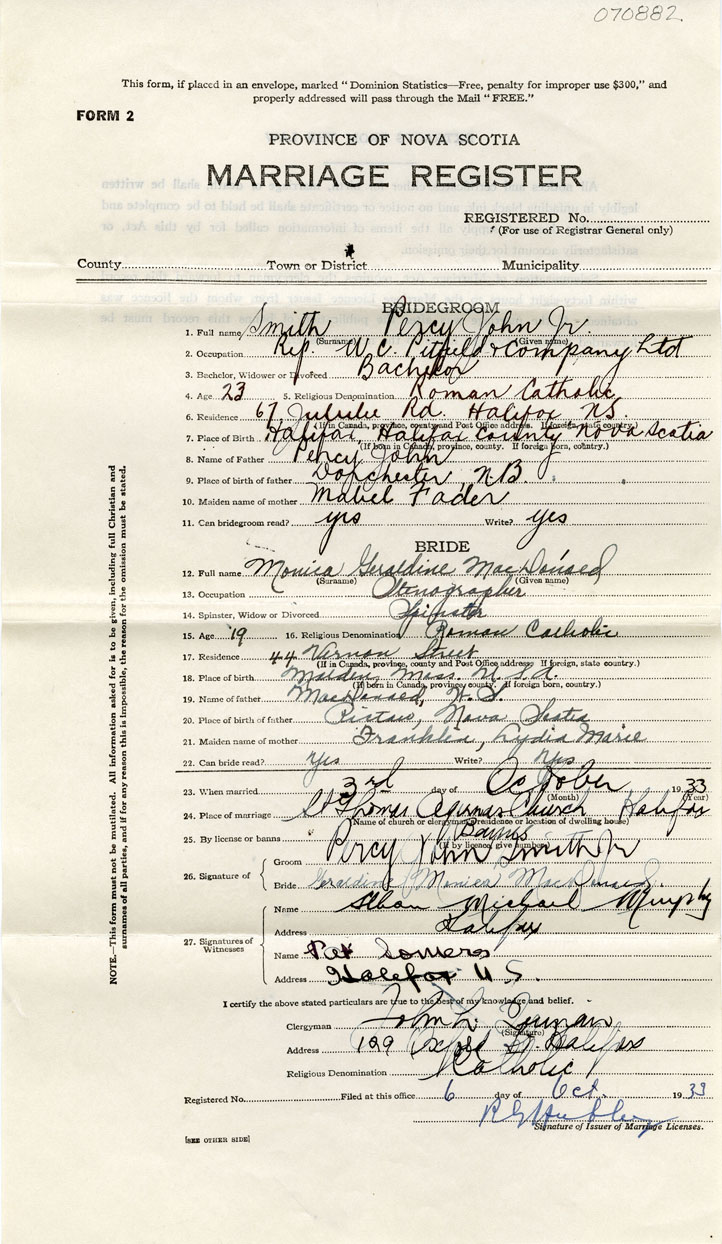 070882
This form, if placed in an envelope, marked "Dominion Statistics—Free, penalty for improper use $300," and
properly addressed will pass through the Mail "FREE."
FORM 2
PROVINCE OF NOVA SCOTIA
MARRIAGE REGISTER
REGISTERED No.
(For use of Registrar General only)
County Town or District Municipality
BRIDEGROOM
1. Full name Smith Percy John Jr.
(Surname) (Given name)
2. Occupation Rep. W. C. Pitfield & Company Ltd
3. Bachelor, Widower or Divorced Bachelor
4. Age 23 5. Religious Denomination Roman Catholic
6. Residence 67 Jubilee Rd. Halifax N.S.
(If in Canada, province, county and Post Office address. If foreign, state country.)
7. Place of Birth Halifax, Halifax County Nova Scotia
(If born in Canada, province, county. If foreign born, country.)
8. Name of Father Percy John
9. Place of birth of father Dorchester, N.B.
10. Maiden name of mother Mabel Fader
11. Can bridegroom read? yes Write? yes
BRIDE
12. Full name Monica Geraldine MacDonald
(Surname) (Given name)
13. Occupation Stenographer
14. Spinster, Widow or Divorced Spinster
15. Age 19 16. Religious Denomination Roman Catholic
17. Residence 44 Vernon Street
(If in Canada, province, county and Post Office address. If foreign, state country.)
18. Place of birth Malden, Mass. U.S.A.
(If born in Canada, province, county. If foreign born, country.)
19. Name of father MacDonald,
20. Place of birth of father Pictou, Nova Scotia
21. Maiden name of mother Franklin, Lydia Marie
22. Can bride read? Yes Write? Yes
23. When married 3rd day of October 1933
(Month) (Year)
24. Place of marriage St Thomas Aquinas Church Halifax
(Name of church or clergyman's residence or location of dwelling house)
25. By license or banns Banns
(If by licence, give number)
26. Signature of
Groom Percy John Smith Jr
Bride Geraldine Monica MacDonald
27. Signatures of
Witnesses
Name Alban Michael Murphy
Address Halifax
Name Pat Somers
Address Halifax N.S.
I certify the above stated particulars are true to the best of my knowledge and belief.
Clergyman John L.
(Signature)
Address 129 Oxford St. Halifax
Religious Denomination Catholic
Registered No. Filed at this office 6 day of Oct. 1933
Signature of Issuer of Marriage Licenses.
[SEE OTHER SIDE]
NOTE.—This form must not be mutilated. All information asked for is to be given, including full Christian and
surnames of all parties, and if for any reason this is impossible, the reason for the omission must be stated.